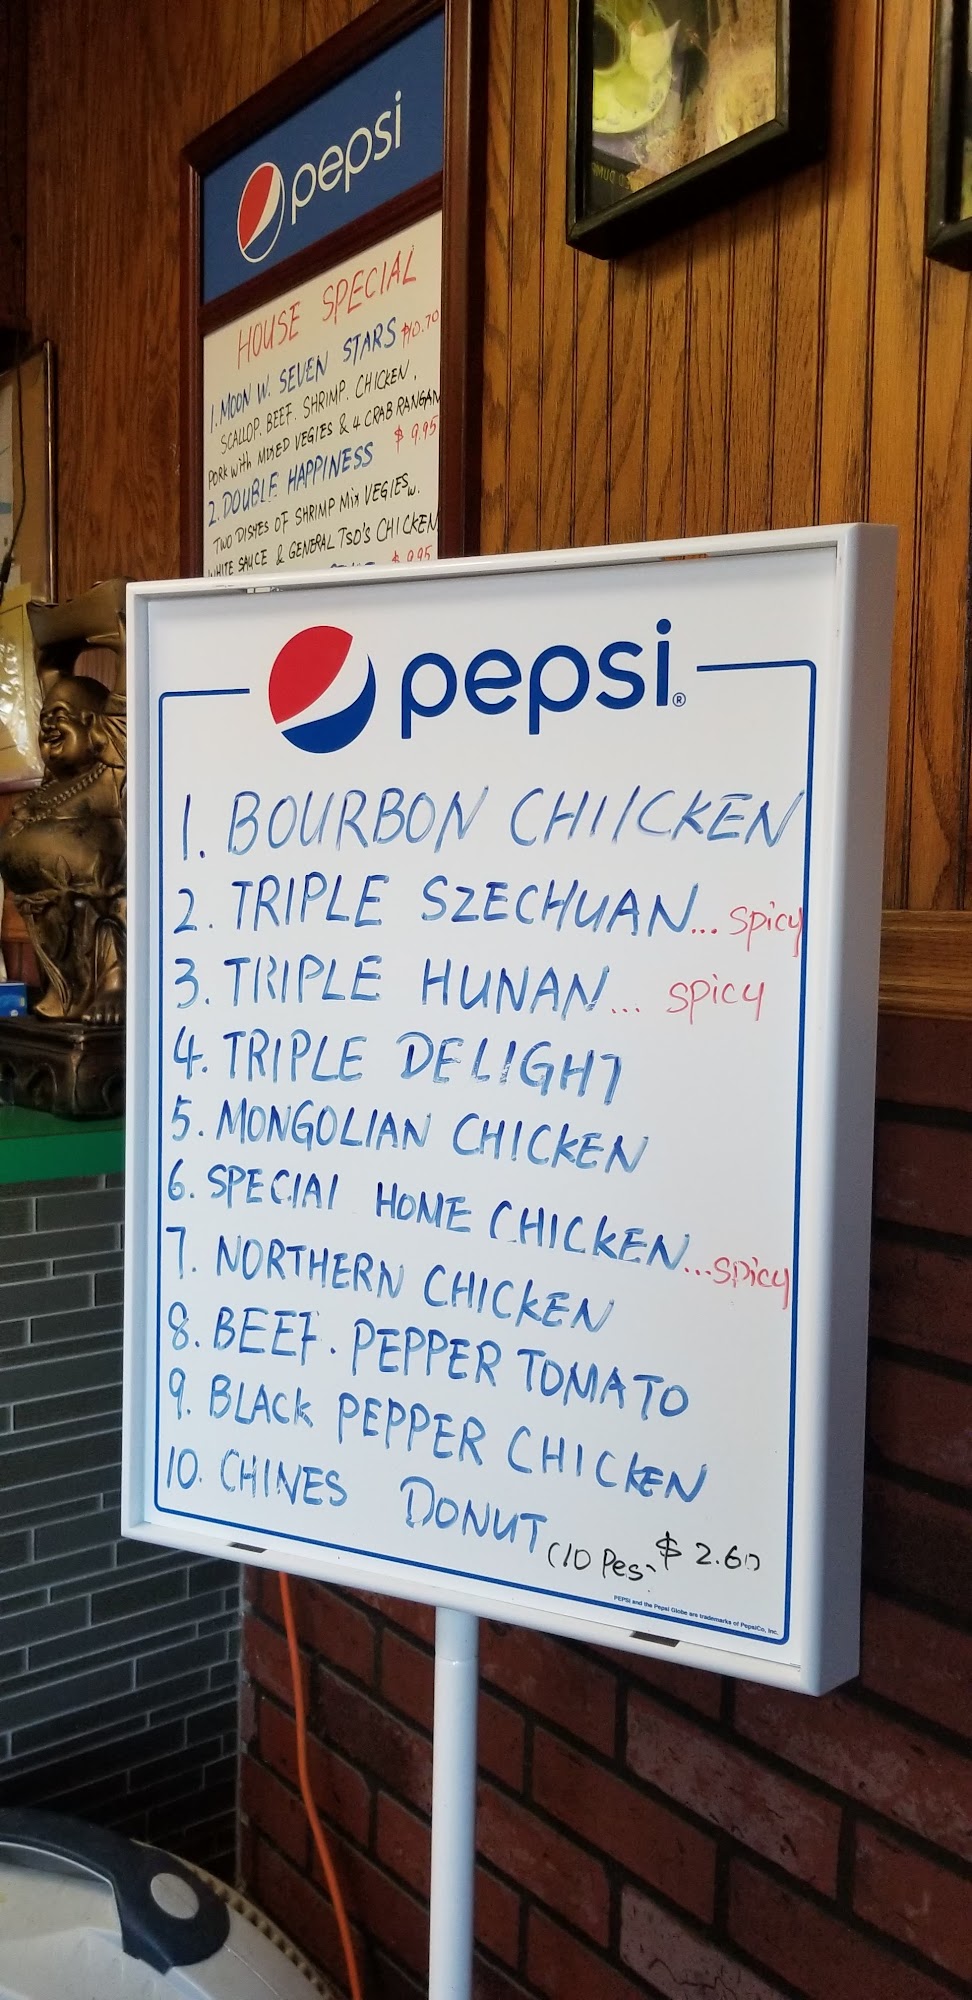 pepsi
HOUSE SPECIAL
1. MOON W. SEVEN STARS $10.70
SCALLOP. BEEF. SHRIMP. CHICKEN.
PORK with MIXED VEGIES & 4 CRAB RANGAN
2. DOUBLE HAPPINESS $ 9.95
TWO DISHES OF SHRIMP Mix VEGIES w.
WHITE SAUCE & GENERAL TSO'S CHICKEN
$ 9.95
pepsi®
1. BOURBON CHIICKEN
2. TRIPLE SZECHUAN... spicy
3. TRIPLE HUNAN... spicy
4. TRIPLE DELIGHT
5. MONGOLIAN CHICKEN
6. SPECIAl HOME CHICKEN...spicy
7. NORTHERN CHICKEN
8. BEEF. PEPPER TOMATO
9. BLACK PEPPER CHICKEN
10. CHINES DONUT (10 Pes. $ 2.60
PEPSI and the Pepsi Globe are trademarks of PepsiCo, Inc.